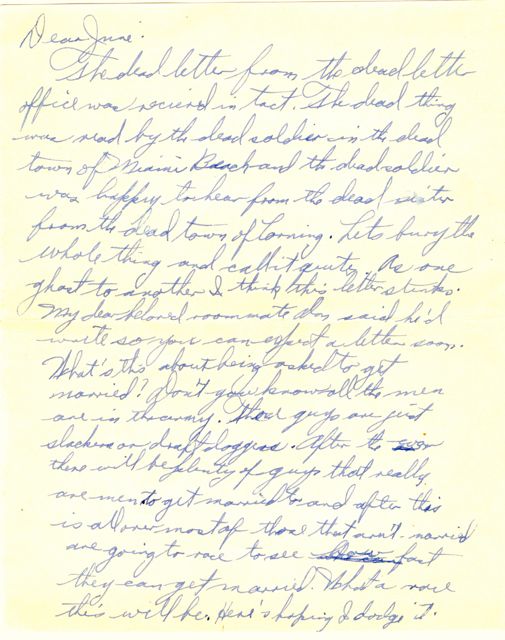 Dear June.
The dead letter from the dead letter
office was recieved in tact. The dead thing
was read by the dead soldier in the dead
town of Miami Beach and the dead soldier
was happy to hear from the dead sister
from the dead town of Corning. Lets bury the
whole thing and call it quits. As one
ghost to another I think this letter stinks.
My dear beloved roommate Don said he'd
write so you can expect a letter soon.
What's this about being asked to get
married? Don't you know all the men
are in the army. Those guys are just
slackers or draft doggers. After the war
there will be plenty of guys that really
are men to get married to and after this
is all over most of those that arn't married
are going to race to see how fast
they can get married. What a race
this will be. Here's hoping I dodge it.